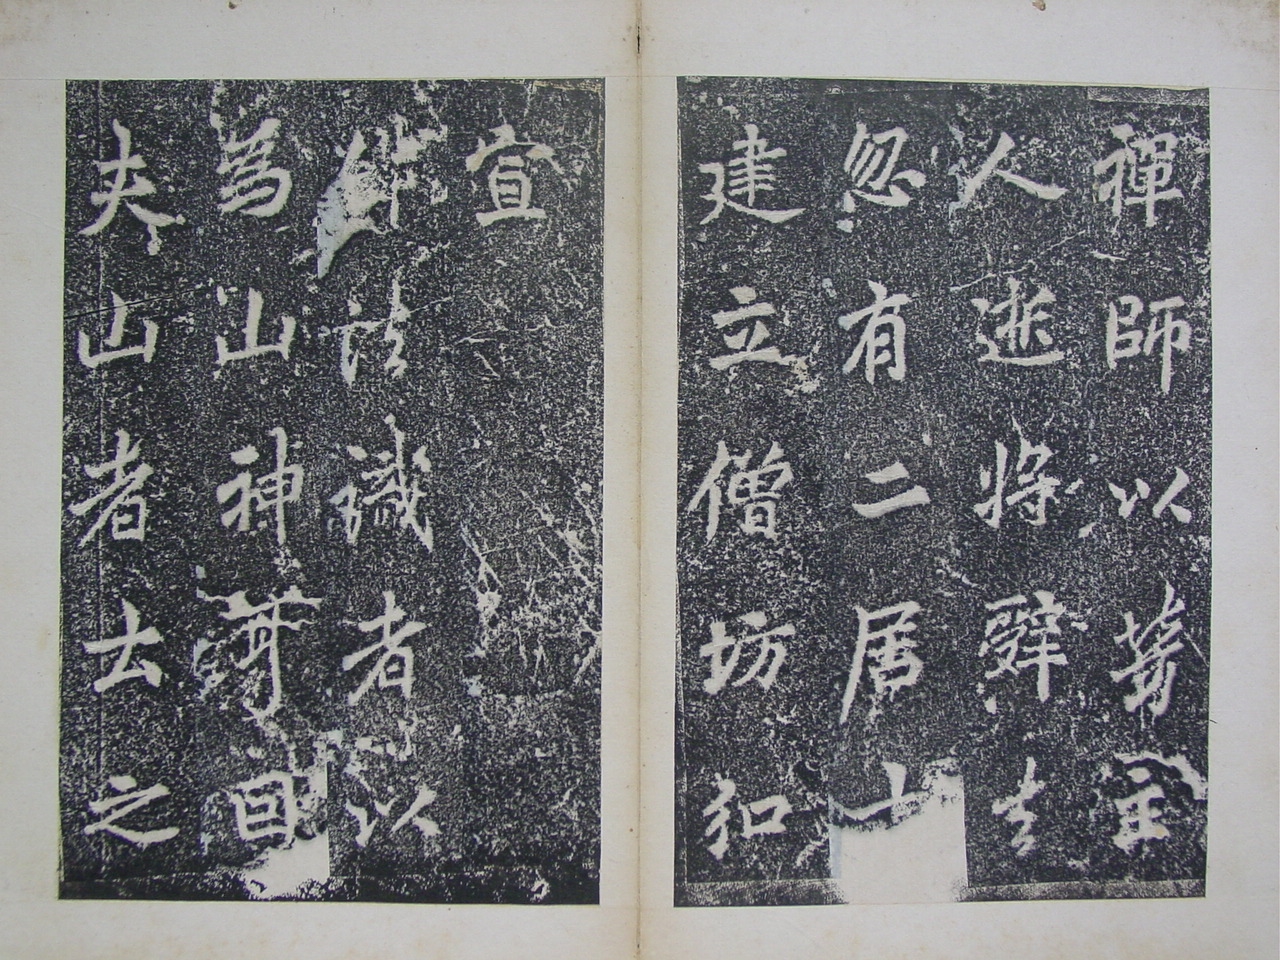 禪師以勞主
人逝將辭去
忽有二居士
建立僧坊弘
宣
法識者以
為山神耳因
夫山者去之